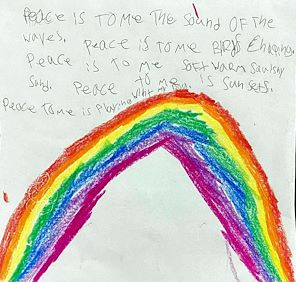 Peace is TO Me The Sound OF The
waves. Peace is TO me BIRD Chirping
Peace is TO Me SOFT warm squishy
Sand. Peace to me is Sunsets.
Peace TO me is Playing with my